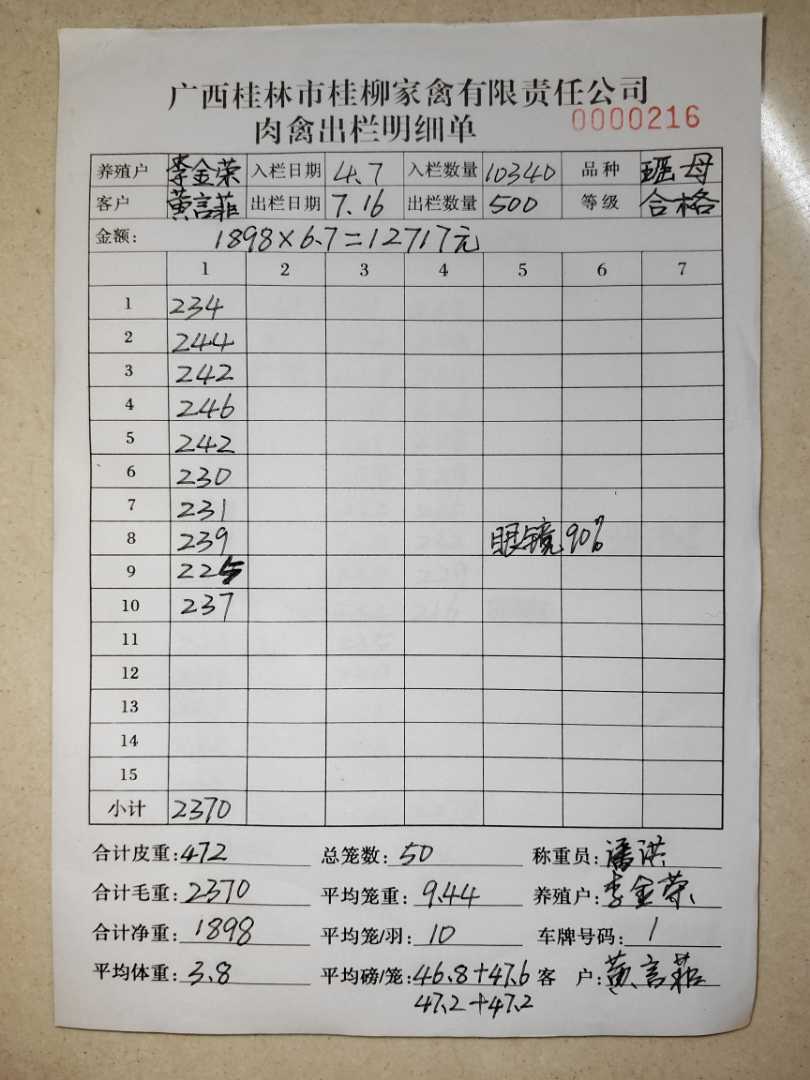 广西桂林市桂柳家禽有限责任公司
肉禽出栏明细单 0000216
养殖户 李金荣 入栏日期 4.7 入栏数量 10340 品种 班母
客户 黄言菲 出栏日期 7.16 出栏数量 500 等级 合格
金额: 1898×6.7=12717元
1 2 3 4 5 6 7
1 234
2 244
3 242
4 246
5 242
6 230
7 231
8 239 眼镜90%
9 225
10 237
11
12
13
14
15
小计 2370
合计皮重:472 总笼数:50 称重员:潘洪
合计毛重:2370 平均笼重:9.44 养殖户:李金荣
合计净重:1898 平均笼/羽:10 车牌号码:1
平均体重:3.8 平均磅/笼:46.8+47.6 客 户:黄言菲
47.2+47.2